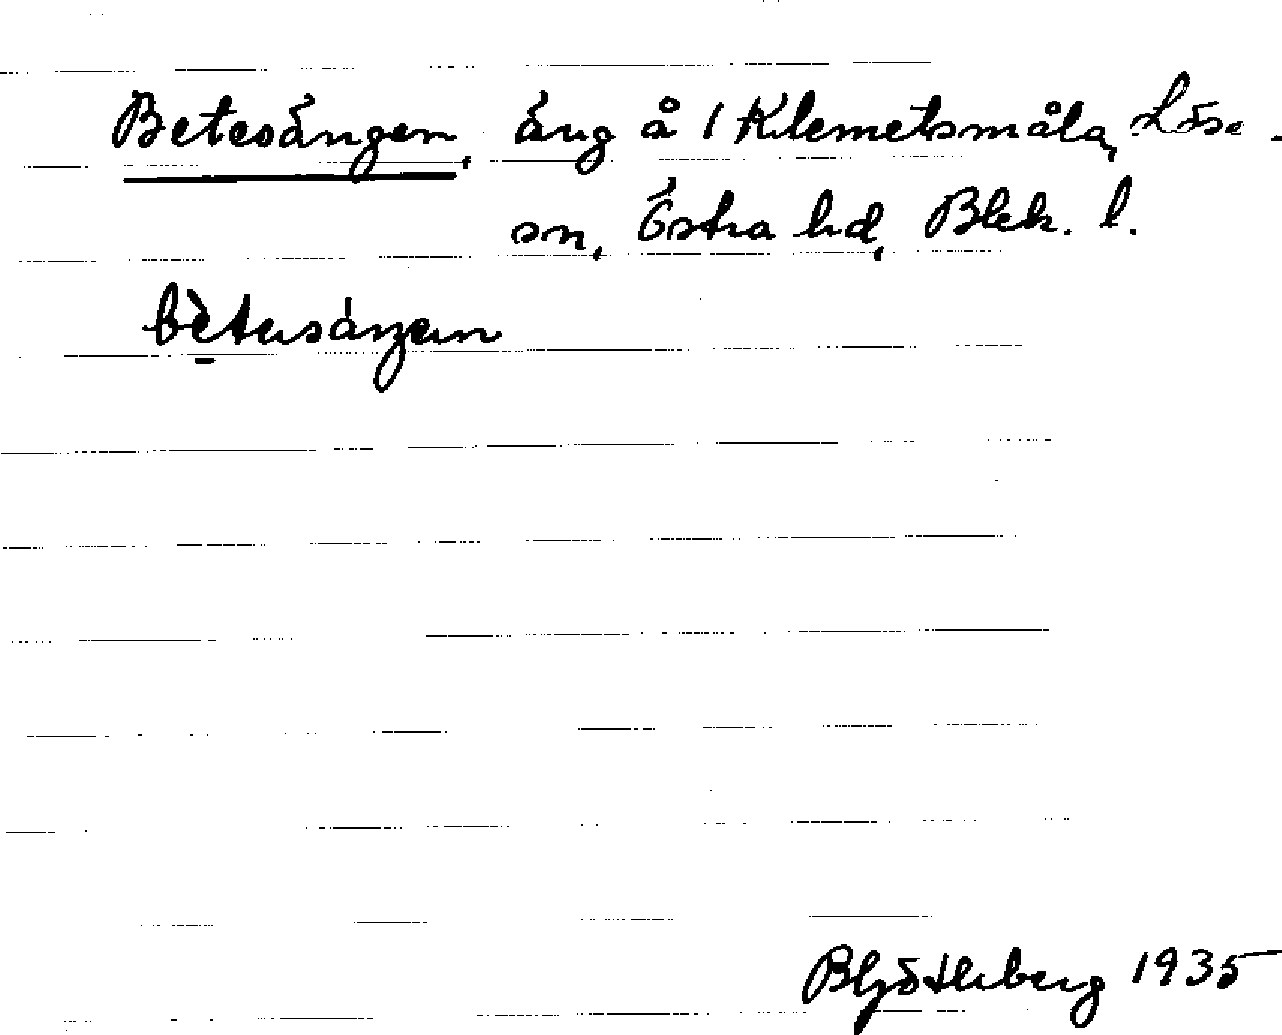 Betesängen, äng å 1 Klemetsmåla, Löse-
sn, Östra hd, Blek. l.
bètesáŋen
1935